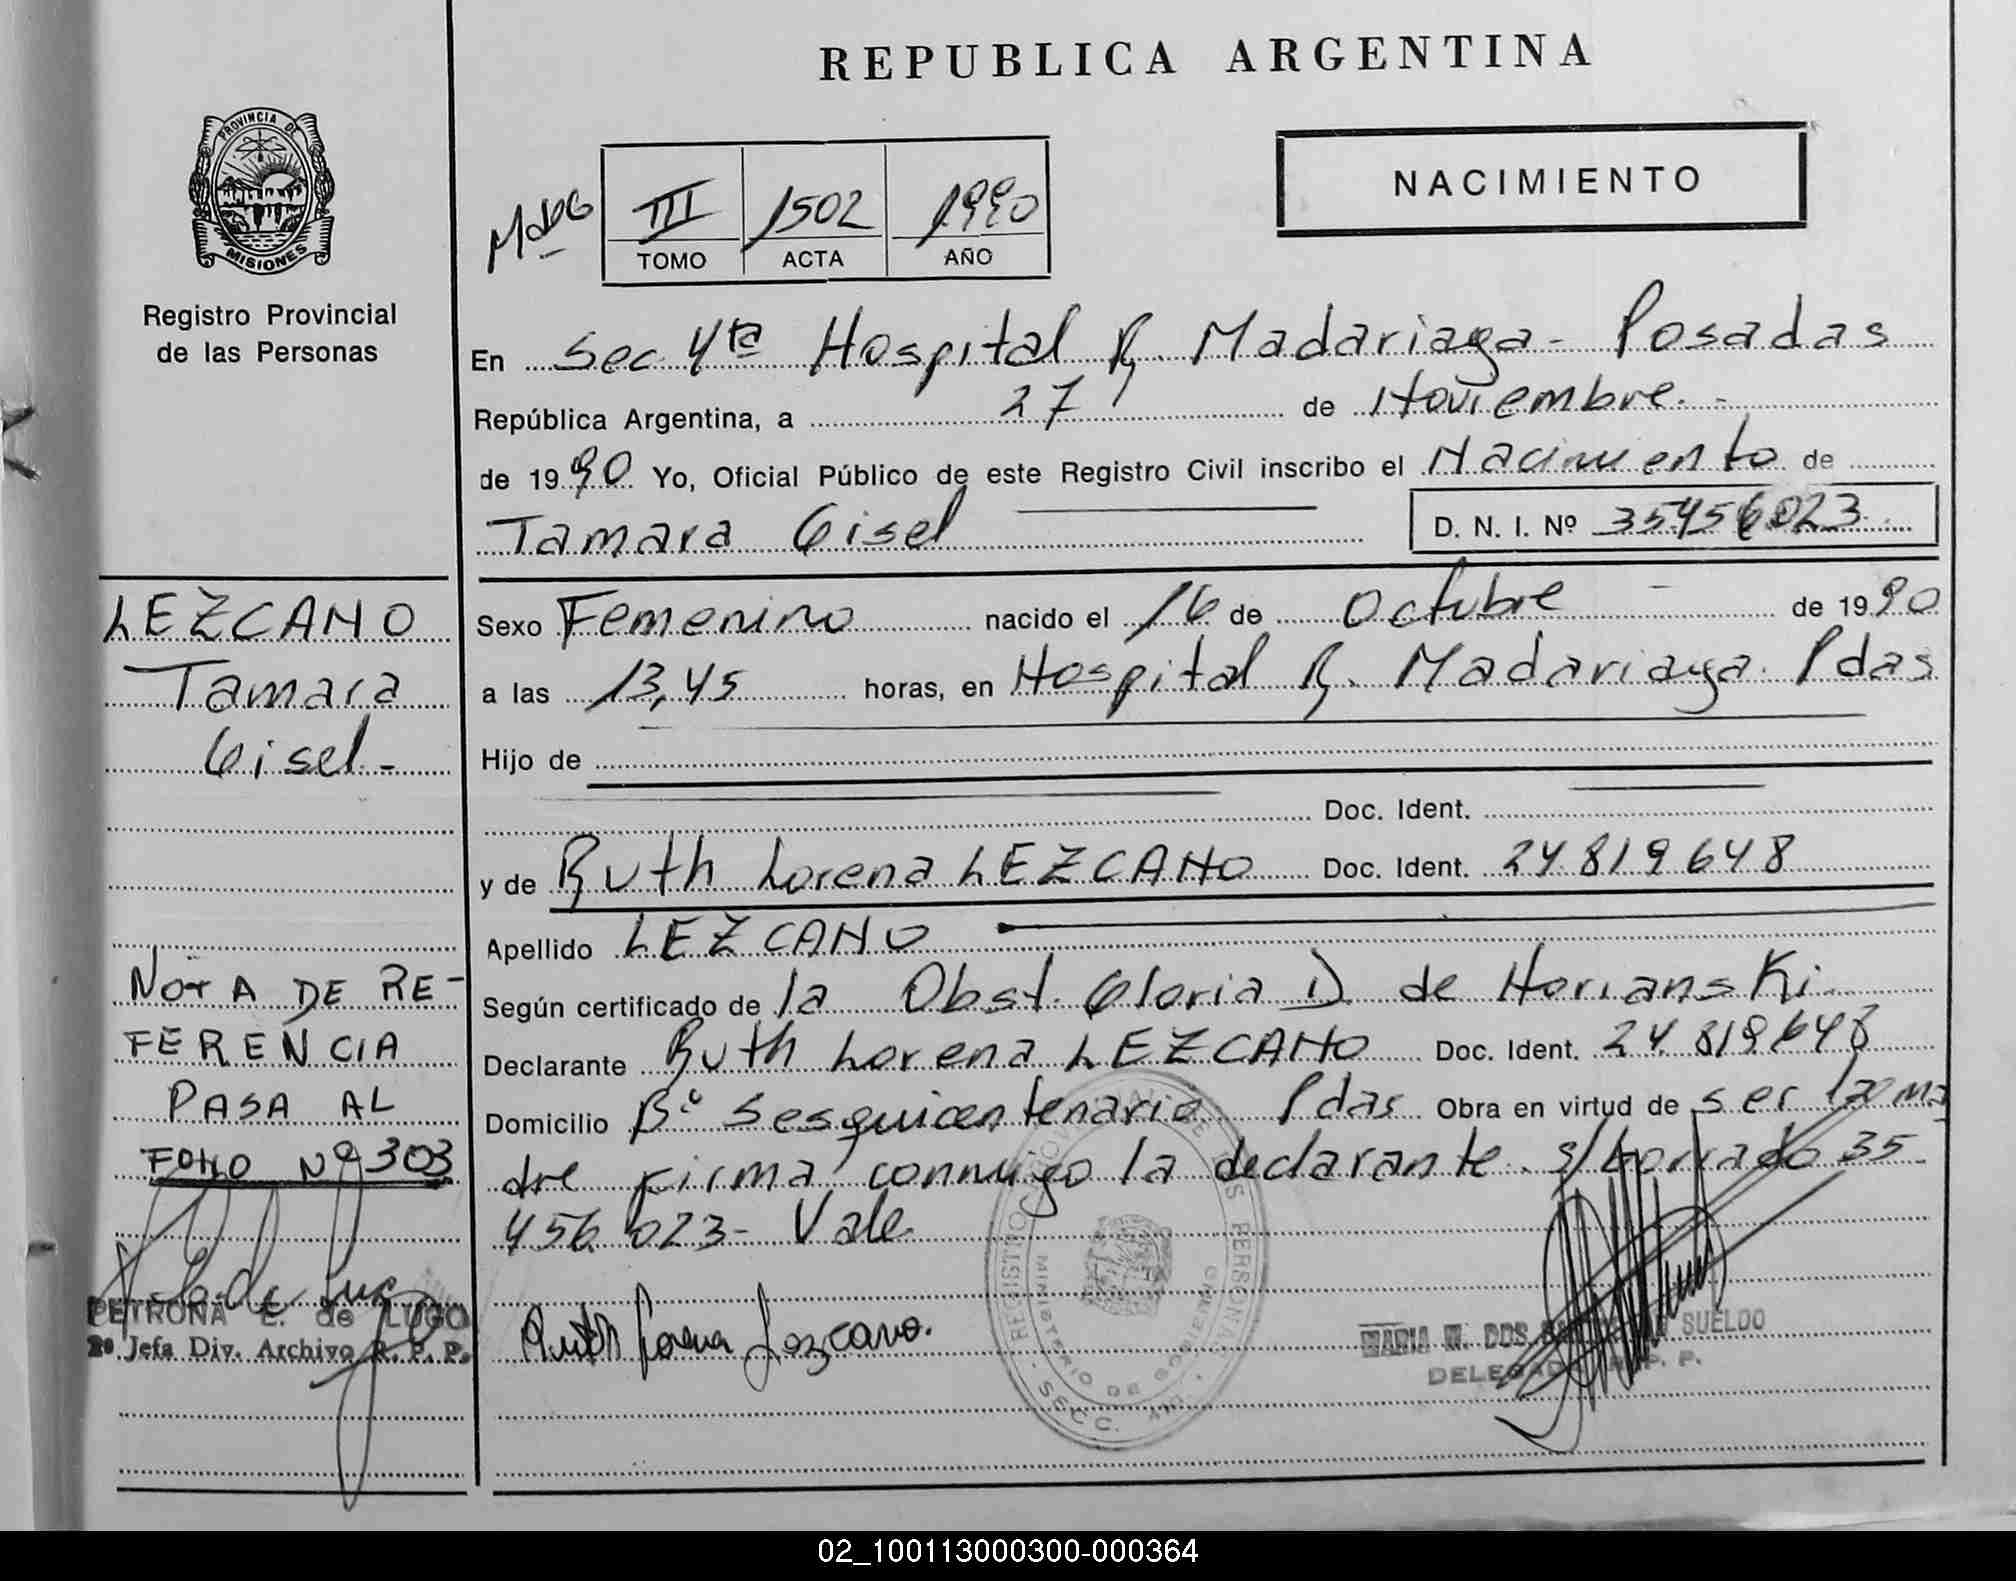 REPUBLICA ARGENTINA
PROVINCIA DE
MISIONES
Registro Provincial
de las Personas
III 1502 1990
TOMO ACTA AÑO
NACIMIENTO
En Sec 4ta Hospital R. Madariaga - Posadas
República Argentina, a 27 de Noviembre. -
de 1990 Yo, Oficial Público de este Registro Civil inscribo el Nacimiento de
Tamara Gisel D. N. I. Nº 35456023
LEZCANO
Tamara
Gisel -
Sexo Femenino nacido el 16 de Octubre de 1990
a las 13,45 horas, en Hospital R. Madariaga. Pdas
Hijo de
Doc. Ident.
y de Ruth Lorena LEZCANO Doc. Ident. 24.819.648
Apellido LEZCANO
Según certificado de la Obst. Gloria D de Horianski.
Declarante Ruth Lorena LEZCANO Doc. Ident. 24.819.648
Domicilio Bº Sesquicentenario Pdas Obra en virtud de ser la ma
dre firma conmigo la declarante. s/borrado 35
456.023- Vale.
NOTA DE RE-
FERENCIA
PASA AL
FOLIO Nº 303
PETRONA E. de LUGO
2º Jefa Div. Archivo R. P. P.
Ruth Lorena Lezcano.
REGISTRO PROVINCIAL DE LAS PERSONAS
MINISTERIO DE GOBIERNO
SECC.
MARIA M. DOS SUELDO
DELEGADA R. P. P.
02_100113000300-000364